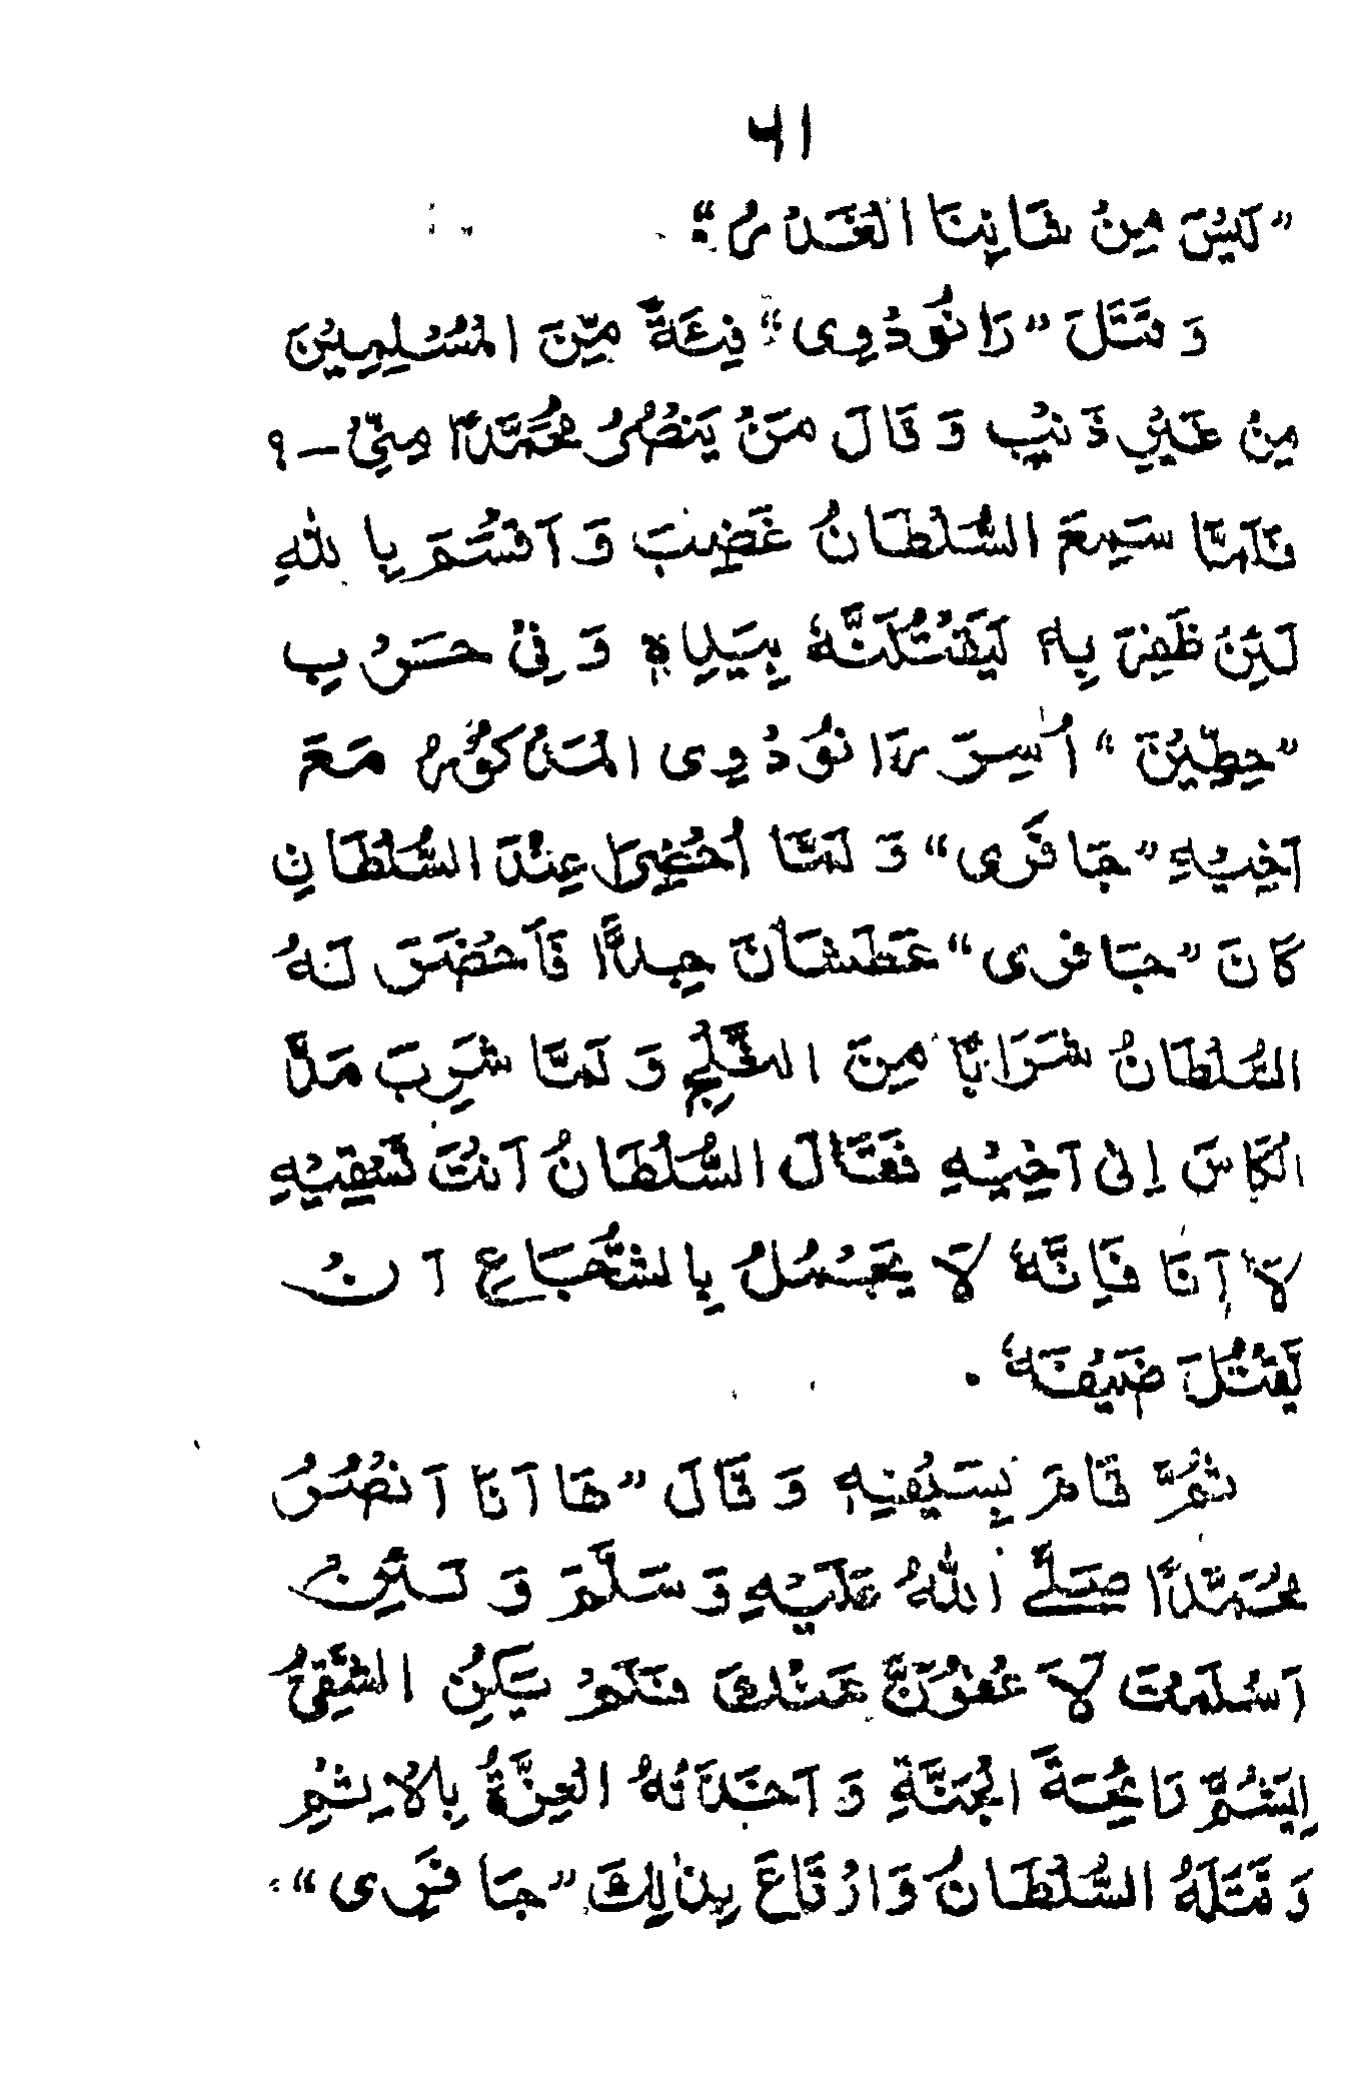 ٦١
”لَيْسَ مِنْ شَانِنَا الْغَدْرُ“
وَ قَتَلَ ”رَانُودُوِى“ فِئَةً مِّنَ الْمُسْلِمِيْنَ
مِنْ غَيْرِ ذَنْبٍ وَ قَالَ مَنْ يَنْصُرُ مُحَمَّدًا مِنِّيْ ـ ؟
فَلَمَّا سَمِعَ السُّلْطَانُ غَضِبَ وَ اَقْسَمَ بِا للهِ
لَئِنْ ظَفِرَ بِهٖ لَيَقْتُلَنَّهٗ بِيَدِهٖ وَ فِىْ حَرْبِ
”حِطِّيْنَ“ اُسِرَ رَانُودُوِى الْمَذْكُوْرُ مَعَ
اَخِيْهِ ”جَافَرِى“ وَ لَمَّا اُحْضِرَا عِنْدَ السُّلْطَانِ
كَانَ ”جَافرِى“ عَطَشَانَ جِدًّا فَاَحْضَرَ لَهُ
السُّلْطَانُ شَرَابًا مِنَ الثَّلْجِ وَ لَمَّا شَرِبَ مَدَّ
الْكَاسَ اِلٰى اَخِيْهِ فَقَالَ السُّلْطَانُ اَنْتَ تَسْقِيْهِ
لَا اَنَا فَاِنَّهٗ لَا يَجْمُلُ بِالشُّجَاعِ اَنْ
يَّقْتُلَ ضَيْفَهٗ .
ثُمَّ قَامَ بِسَيْفِهٖ وَ قَالَ ”هَا اَنَا اَنْصُرُ
مُحَمَّدًا صَلَّى اللهُ عَلَيْهِ وَسَلَّمَ وَ لَئِنْ
اَسْلَمْتَ لَاَ عْفُوَنَّ عَنْكَ فَلَمْ يَكُنِ الشَّقِىُّ
لِيَشُمَّ رَائِحَةَ الْجَنَّةِ وَ اَخَذَتْهُ الْعِزَّةُ بِالْاِثْمِ
وَ قَتَلَهُ السُّلْطَانُ وَارْتَاعَ بِذٰلِكَ ”جَافَرِى“